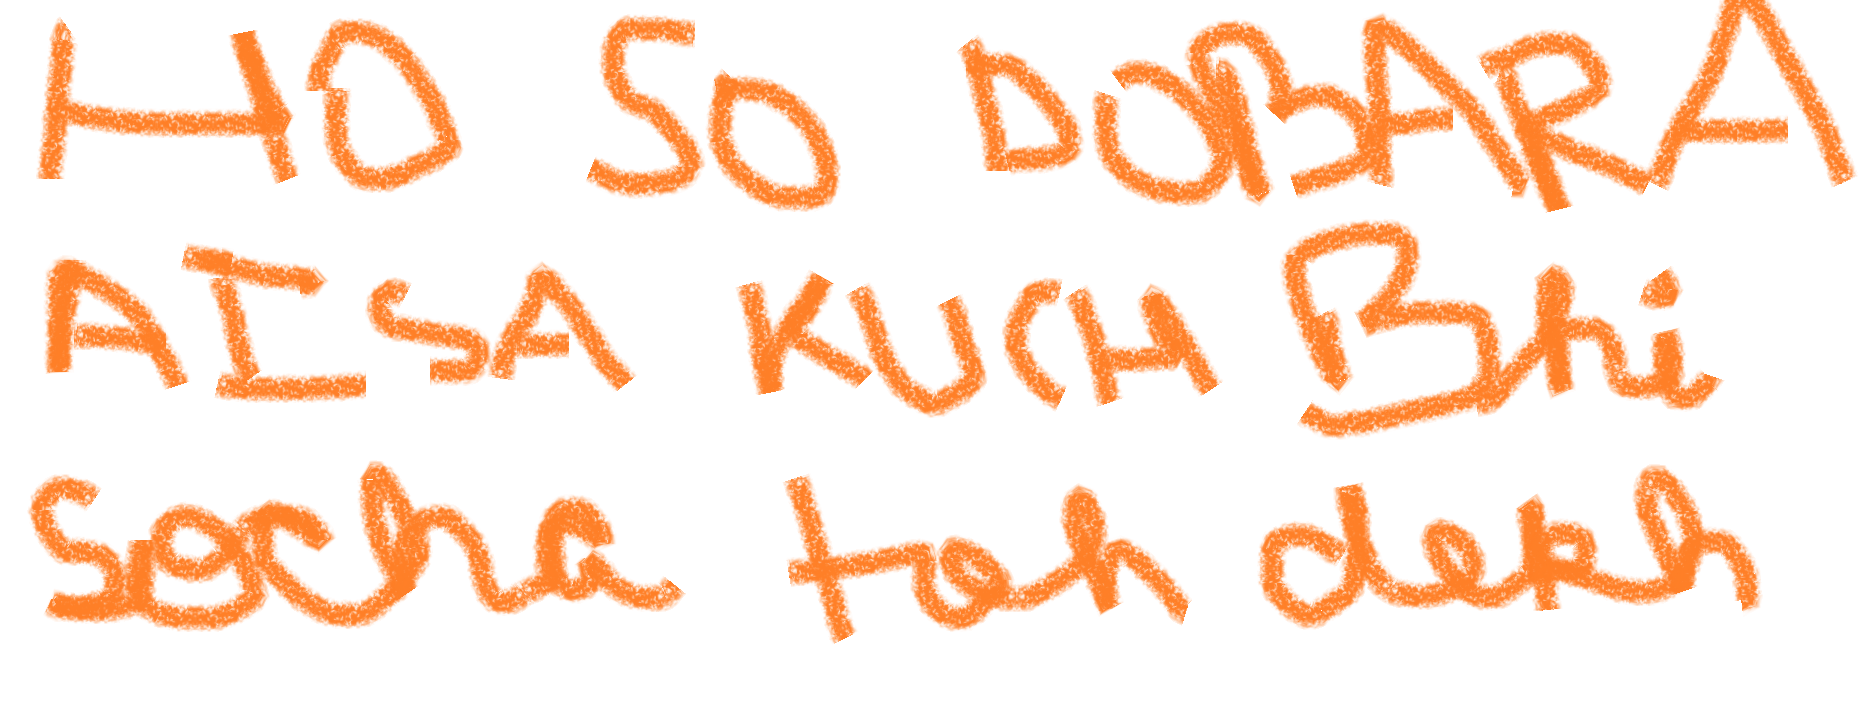 HO SO DOBARA
AISA KUCH Bhi
socha toh dekh